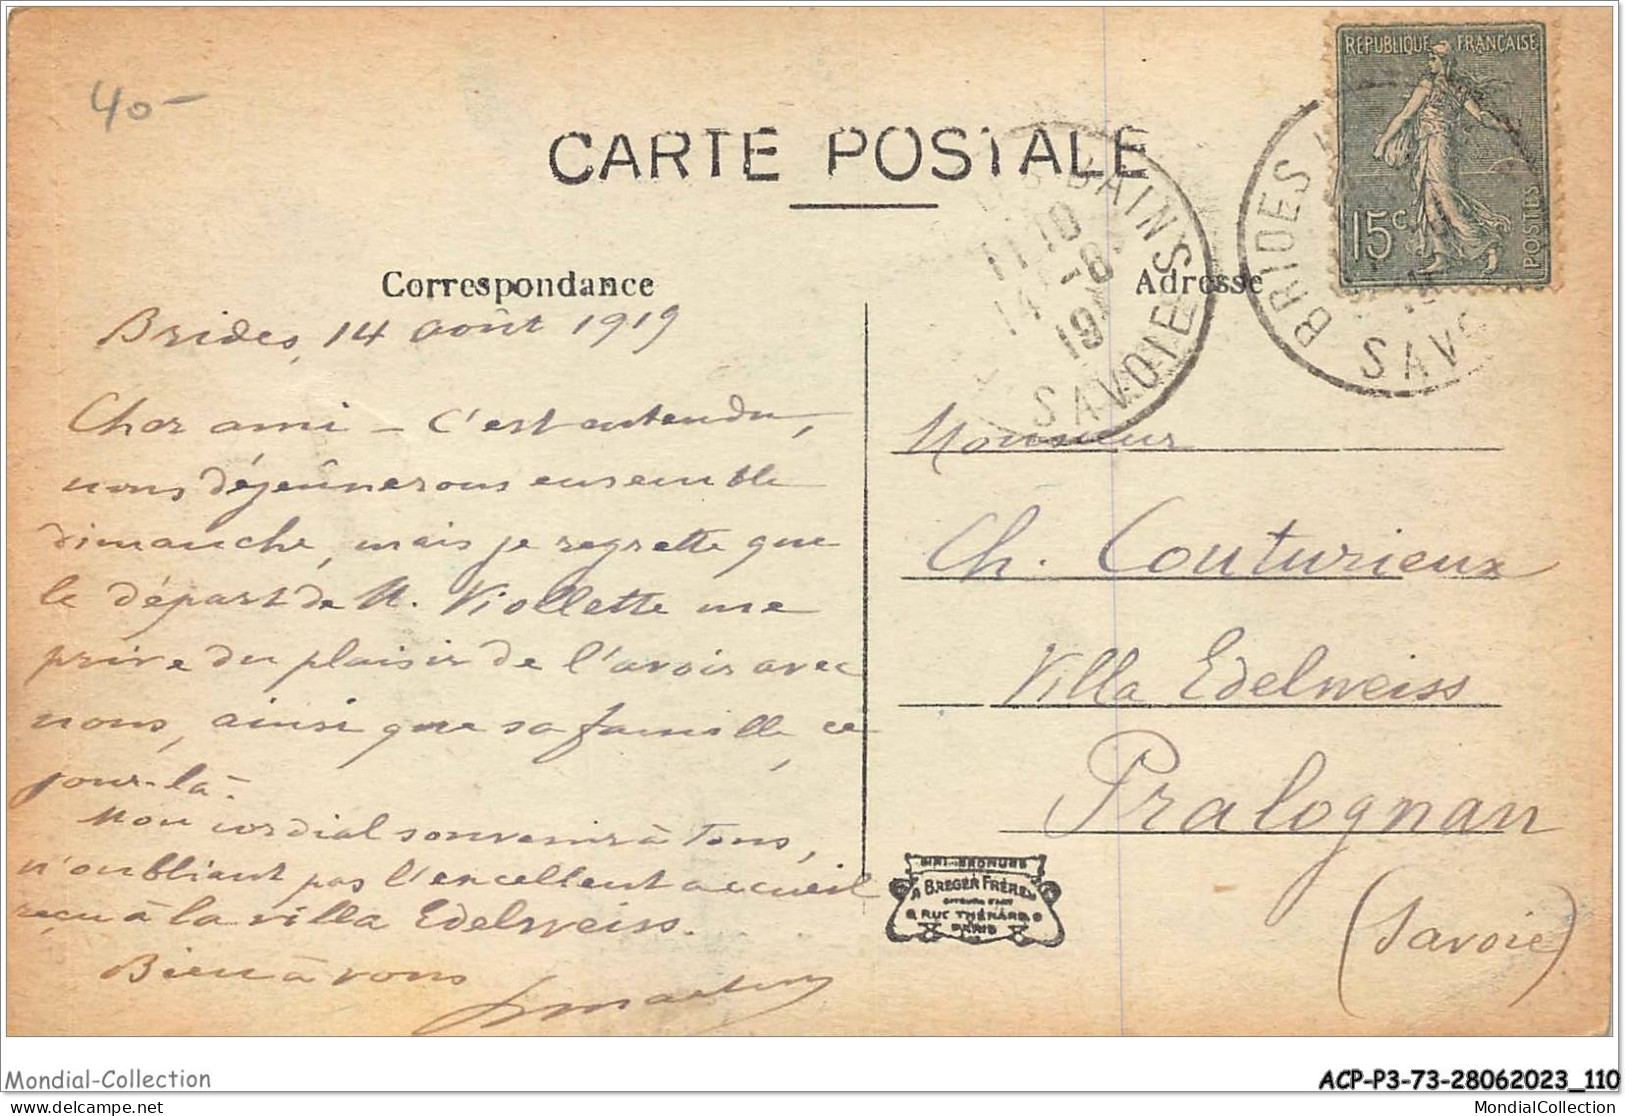 40-
CARTE POSTALE
REPUBLIQUE FRANÇAISE
15c
POSTES
BRIDES
SAVOIE
BAINS
11 10
14 -8
19
SAVOIE
Correspondance
Adresse
Brides, 14 août 1919
Cher ami - C'est entendu,
nous déjeûnerons ensemble
dimanche, mais je regrette que
le départ de M. Viollette me
prive du plaisir de l'avoir avec
nous, ainsi que sa famille, ce
jour-là.
Mon cordial souvenir à Tous,
n'oubliant pas l'excellent accueil
reçu à la villa Edelweiss.
Bien à vous
Monsieur
Ch. Couturieux
Villa Edelweiss
Pralognan
(Savoie)
A BREGER FRÈRES
9 RUE THÉNARD 9
PARIS
Mondial-Collection
ACP-P3-73-28062023_110
www.delcampe.net
MondialCollection